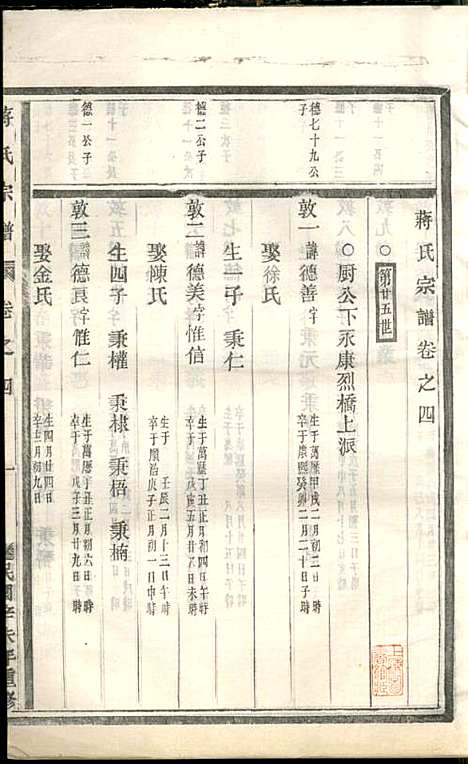 蔣氏宗譜卷之四
○第廿五世
○厨公下永康烈橋上派
德七十九公子
敦一諱德善字
生于萬曆甲戌二月初二日
卒于康熙癸卯二月二十日子時
娶徐氏
生一子 秉仁
德二公子
敦二諱德美字惟信
生于萬曆丁丑正月初四日午時
卒于庚寅五月廿八日未時
娶陳氏
生于壬辰二月十三日午時
卒于順治庚子正月初一日申時
生四子 秉權 秉棣 秉梧 秉楠
德一公子
敦三諱德良字惟仁
生于萬曆丁丑正月初六日時
卒于戊子三月廿九日子時
娶金氏
生四月廿四日
卒三月初九日
蔣氏宗譜 卷之四 一
民國辛未年重修